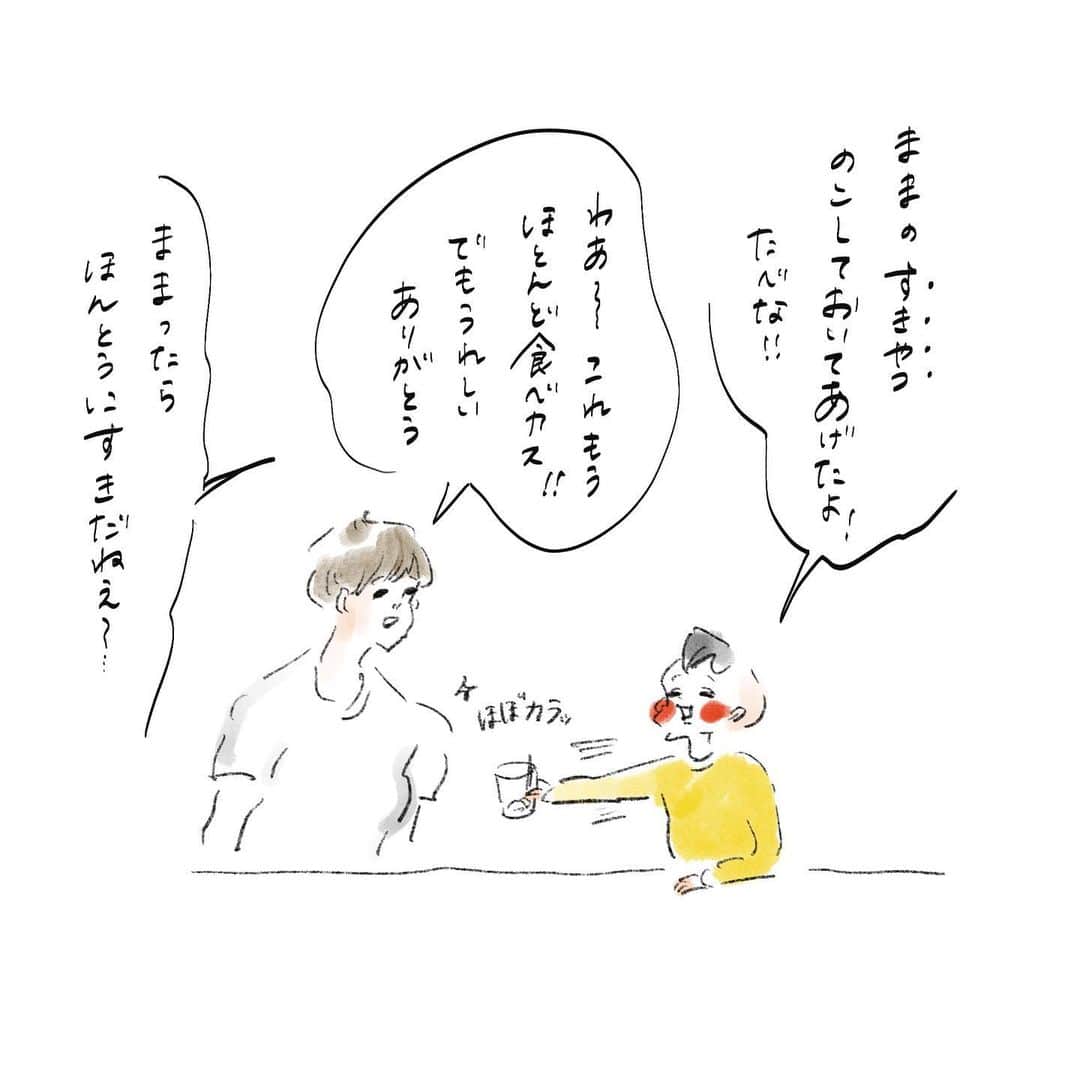 ままのすきやつ
のこしておいてあげたよ!
たべな!!
わあ〜これもう
ほとんど食べカス!!
でもうれしい
ありがとう
ほぼカラッ
ままったら
ほんとうにすきだねぇ〜…